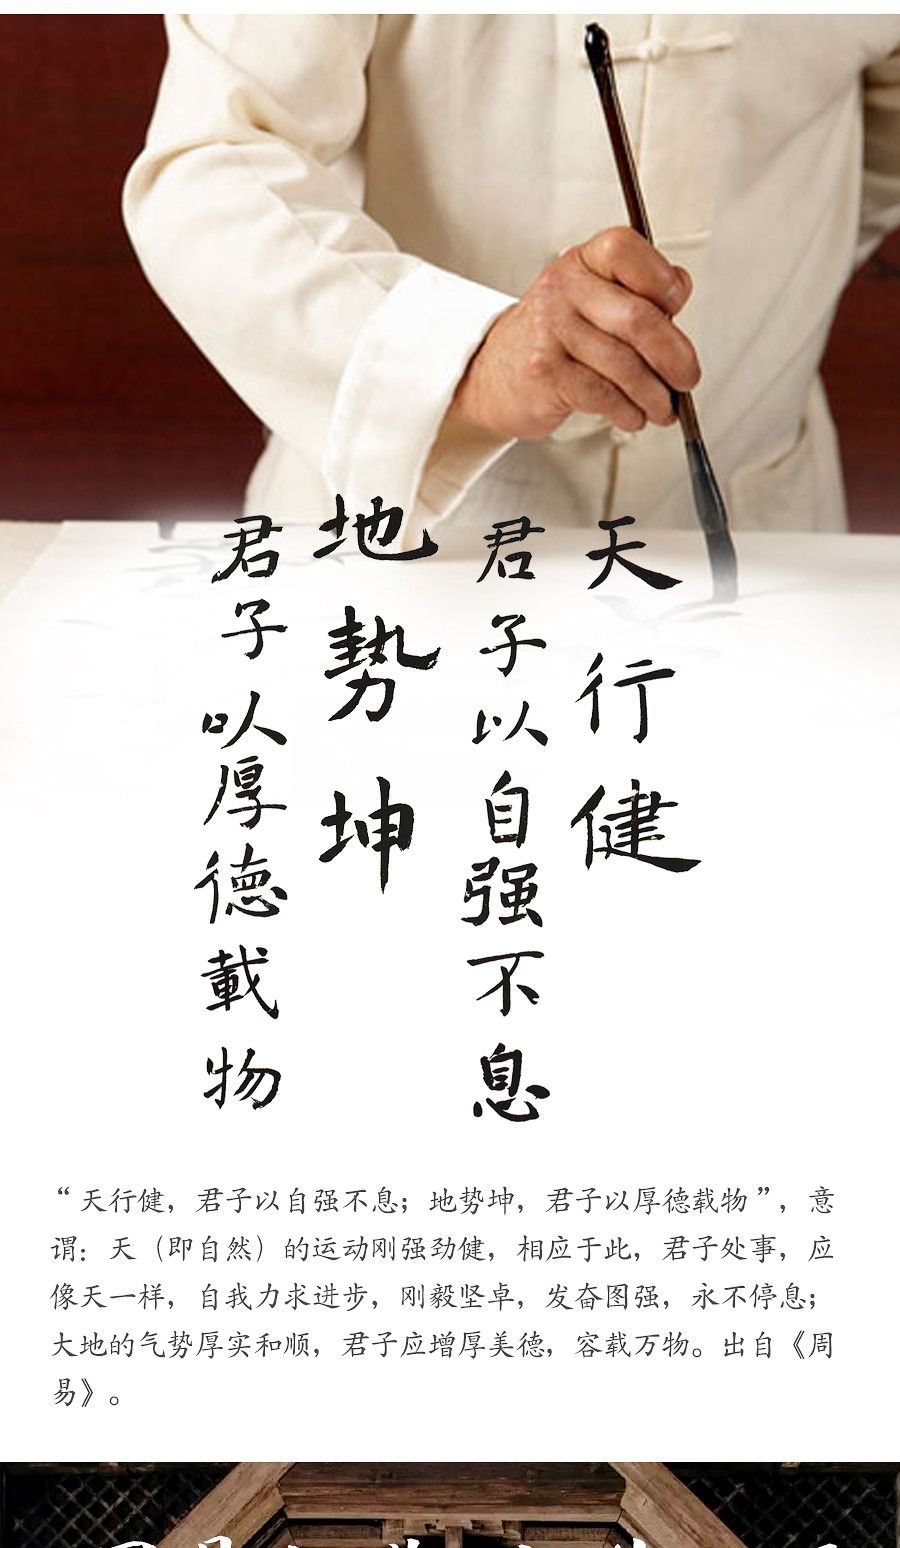 天行健
君子以自强不息
地势坤
君子以厚德載物
“天行健，君子以自强不息；地势坤，君子以厚德载物”，意
谓：天（即自然）的运动刚强劲健，相应于此，君子处事，应
像天一样，自我力求进步，刚毅坚卓，发奋图强，永不停息；
大地的气势厚实和顺，君子应增厚美德，容载万物。出自《周
易》。